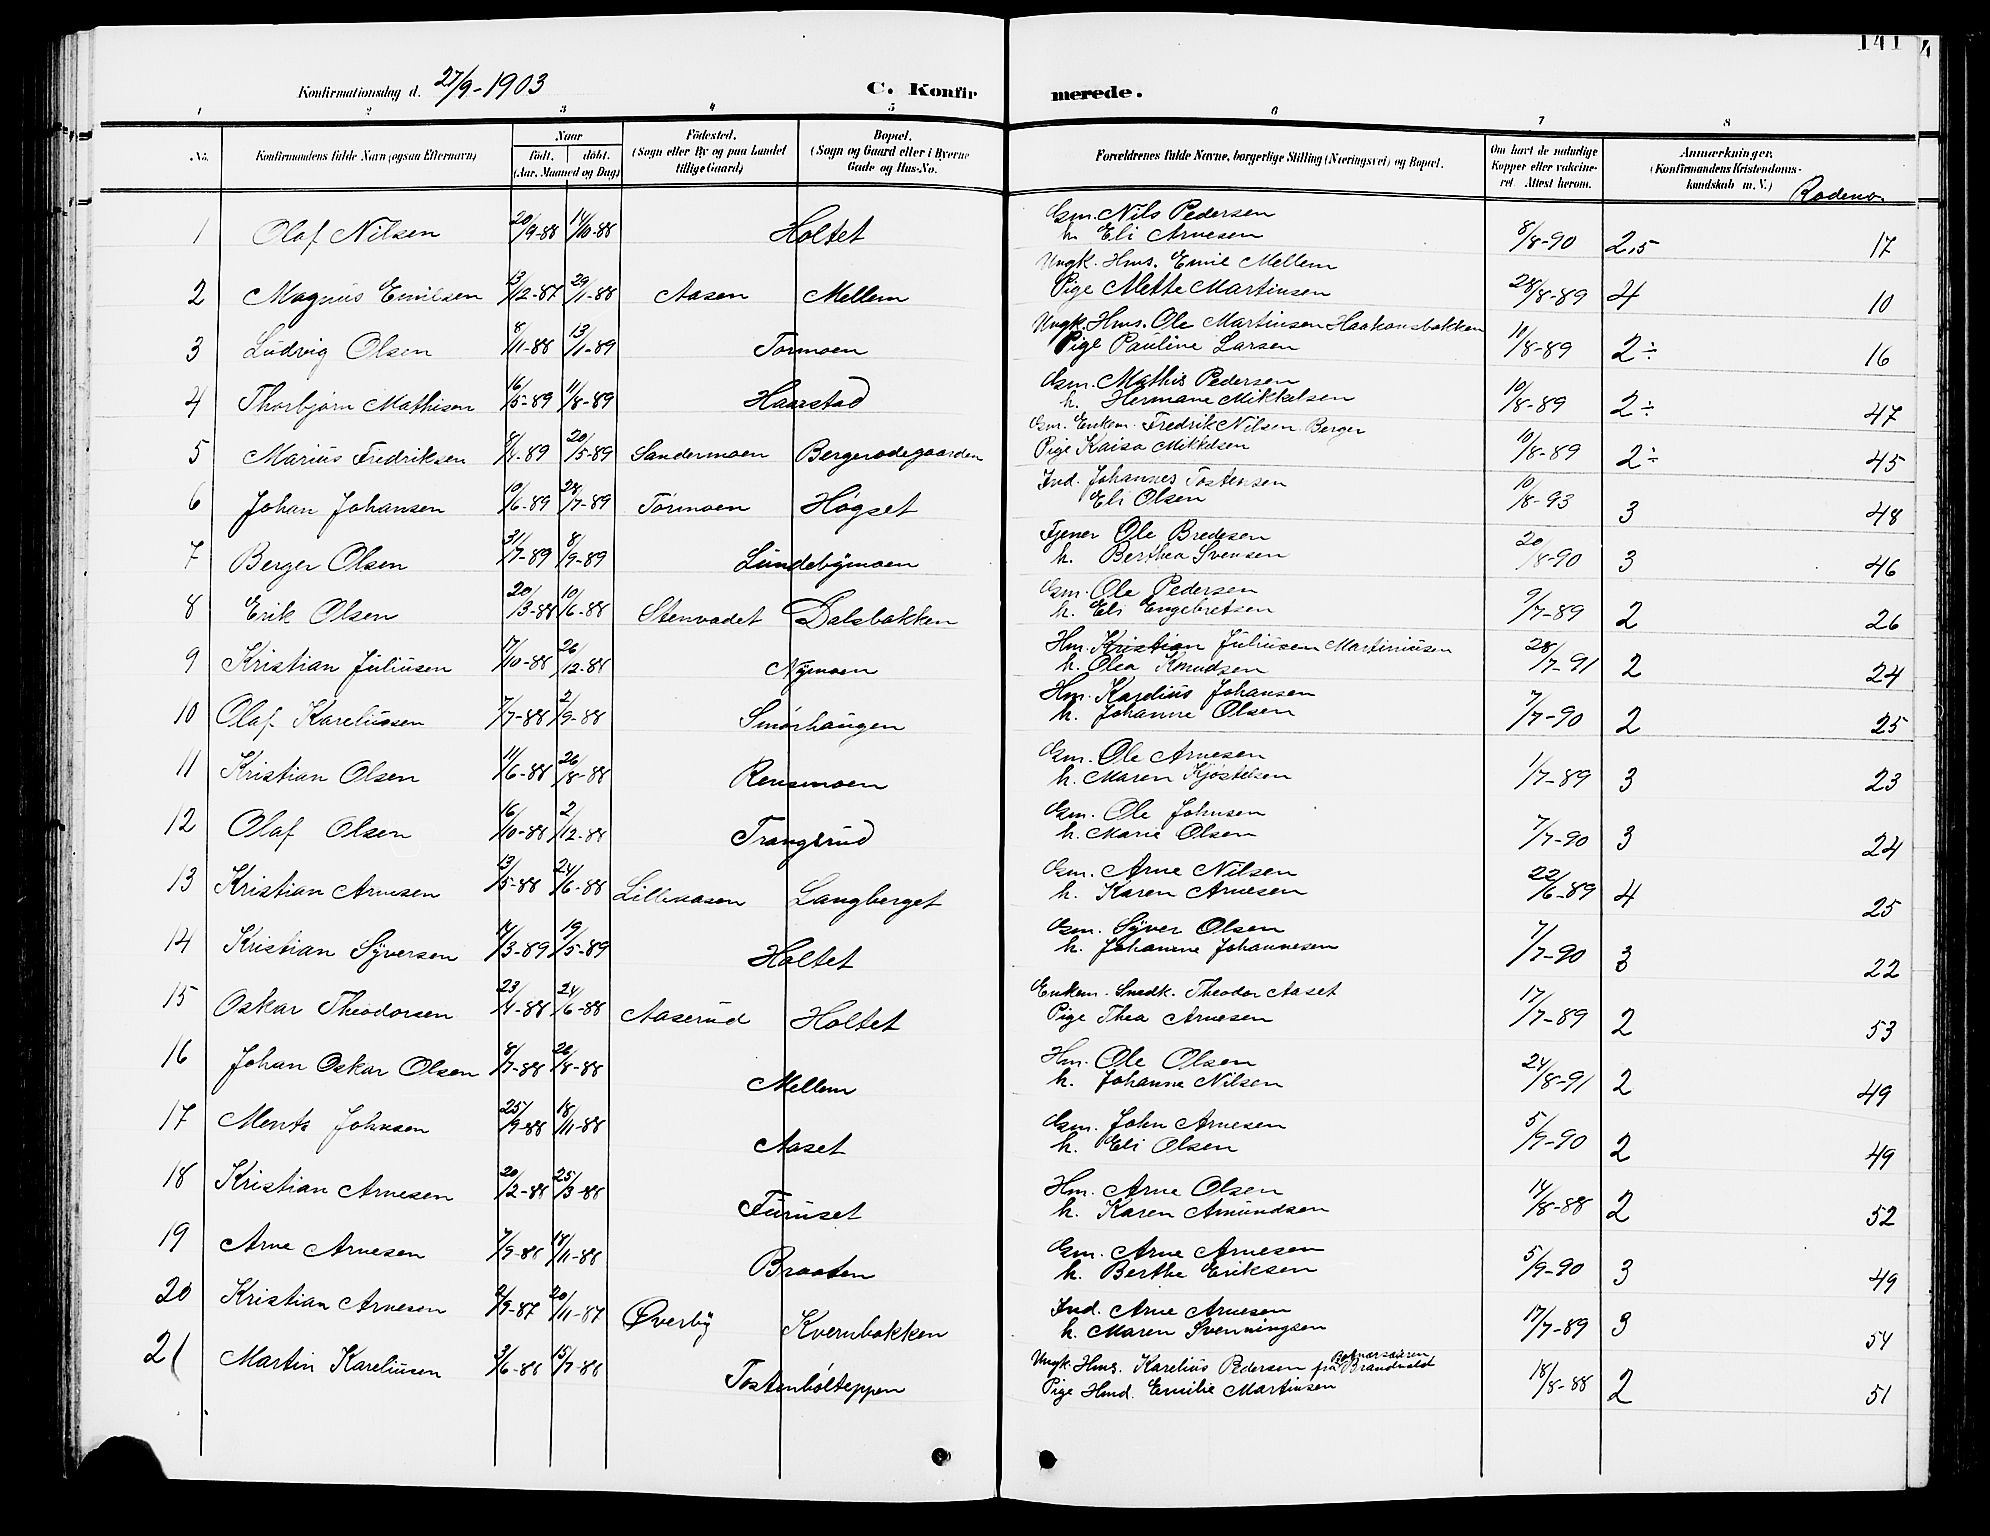 141
Konfirmationsdag d. 27/9-1903 C. Konfirmerede.
1 2 3 4 5 6 7 8
No. Konfirmandens fulde Navn (ogsaa Efternavn) Naar født. døbt. (Aar, Maaned og Dag) Fødested. (Sogn eller By og paa Landet tillige Gaard) Bopæl. (Sogn og Gaard eller i Byerne Gade og Hus-No. Forældrenes fulde Navne, borgerlige Stilling (Næringsvei) og Bopæl. Om havt de naturlige Kopper eller vaccineret Attest herom. Anmærkninger. (Konfirmandens Kristendomskundskab m. V.) Rodeno.
1 Olaf Nilsen 20/9-88 14/10-88 Holtet Gm. Nils Pedersen
h. Eli Arnesen 8/8-90 2,5 17
2 Magnus Emilsen 13/12-87 29/1-88 Aasen Mellem Ungk. Hms. Emil Mellem
Pige Mette Martinsen 28/8-89 4 10
3 Ludvig Olsen 8/11-88 13/1-89 Tormoen Ungk. Hms. Ole Martinsen Haakonsbakken
Pige Pauline Larsen 11/8-89 2÷ 16
4 Thorbjørn Mathisen 16/5-89 11/8-89 Haarstad Gm. Mathis Pedersen
h. Hermane Mikkelsen 10/8-89 2÷ 47
5 Marius Fredriksen 8/4-89 20/5-89 Sandermoen Bergerodegaarden Gm. Enkem. Fredrik Nilsen Berger
Pige Kaisa Mikkelsen 10/8-89 2÷ 45
6 Johan Johansen 10/6-89 28/7-89 Tørmoen Høgset Ind. Johannes Tostensen
Eli Olsen 10/8-93 3 48
7 Berger Olsen 31/7-89 8/9-89 Lundebymoen Tjener Ole Bredesen
h. Berthea Svensen 20/8-90 3 46
8 Erik Olsen 20/3-88 10/6-88 Stenvadet Dalsbakken Gm. Ole Pedersen
h. Eli Engebretsen 9/7-89 2 26
9 Kristian Juliusen 17/10-88 26/12-88 Nymoen Hm. Kristian Juliusen Martiniusen
h. Olea Knudsen 28/7-91 2 24
10 Olaf Kareliussen 7/7-88 2/9-88 Smørhaugen Hm. Karelius Johansen
h. Johanne Olsen 7/7-90 2 25
11 Kristian Olsen 11/6-88 26/8-88 Rensmoen Gm. Ole Arnesen
h. Maren Kjøstelsen 1/7-89 3 23
12 Olaf Olsen 16/10-88 2/12-88 Trangsrud Gm. Ole Johnsen
h. Marie Olsen 7/7-90 3 24
13 Kristian Arnesen 13/5-88 24/6-88 Lilleaasen Langberget Gm. Arne Nilsen
h. Karen Arnesen 22/6-89 4 25
14 Kristian Syversen 4/3-89 19/5-89 Holtet Gm. Syver Olsen
h. Johanne Johannesen 7/7-90 3 22
15 Oskar Theodorsen 23/4-88 24/6-88 Aaserud Holtet Enkem. Snedk. Theodor Aaset
Pige Thea Arnesen 17/7-89 2 53
16 Johan Oskar Olsen 8/7-88 26/8-88 Mellem Hm. Ole Olsen
h. Johanne Nilsen 24/8-91 2 49
17 Ments Johnsen 25/9-88 18/11-88 Aaset Gm. John Arnesen
h. Eli Olsen 5/9-90 2 49
18 Kristian Arnesen 20/2-88 25/3-88 Furuset Hm. Arne Olsen
h. Karen Amundsen 14/8-88 2 52
19 Arne Arnesen 7/9-88 18/11-88 Braaten Gm. Arne Arnesen
h. Berthe Eriksen 5/9-90 3 49
20 Kristian Arnesen 2/9-87 20/11-87 Øverby Kvernbakken Ind. Arne Arnesen
h. Maren Svenningsen 17/7-89 3 54
21 Martin Kareliusen 3/6-88 15/7-88 Tostenholteppen Ungk. Hms. Karelius Pedersen fra Brandvald
Pige Hmd. Emilie Martinsen 18/8-88 2 51